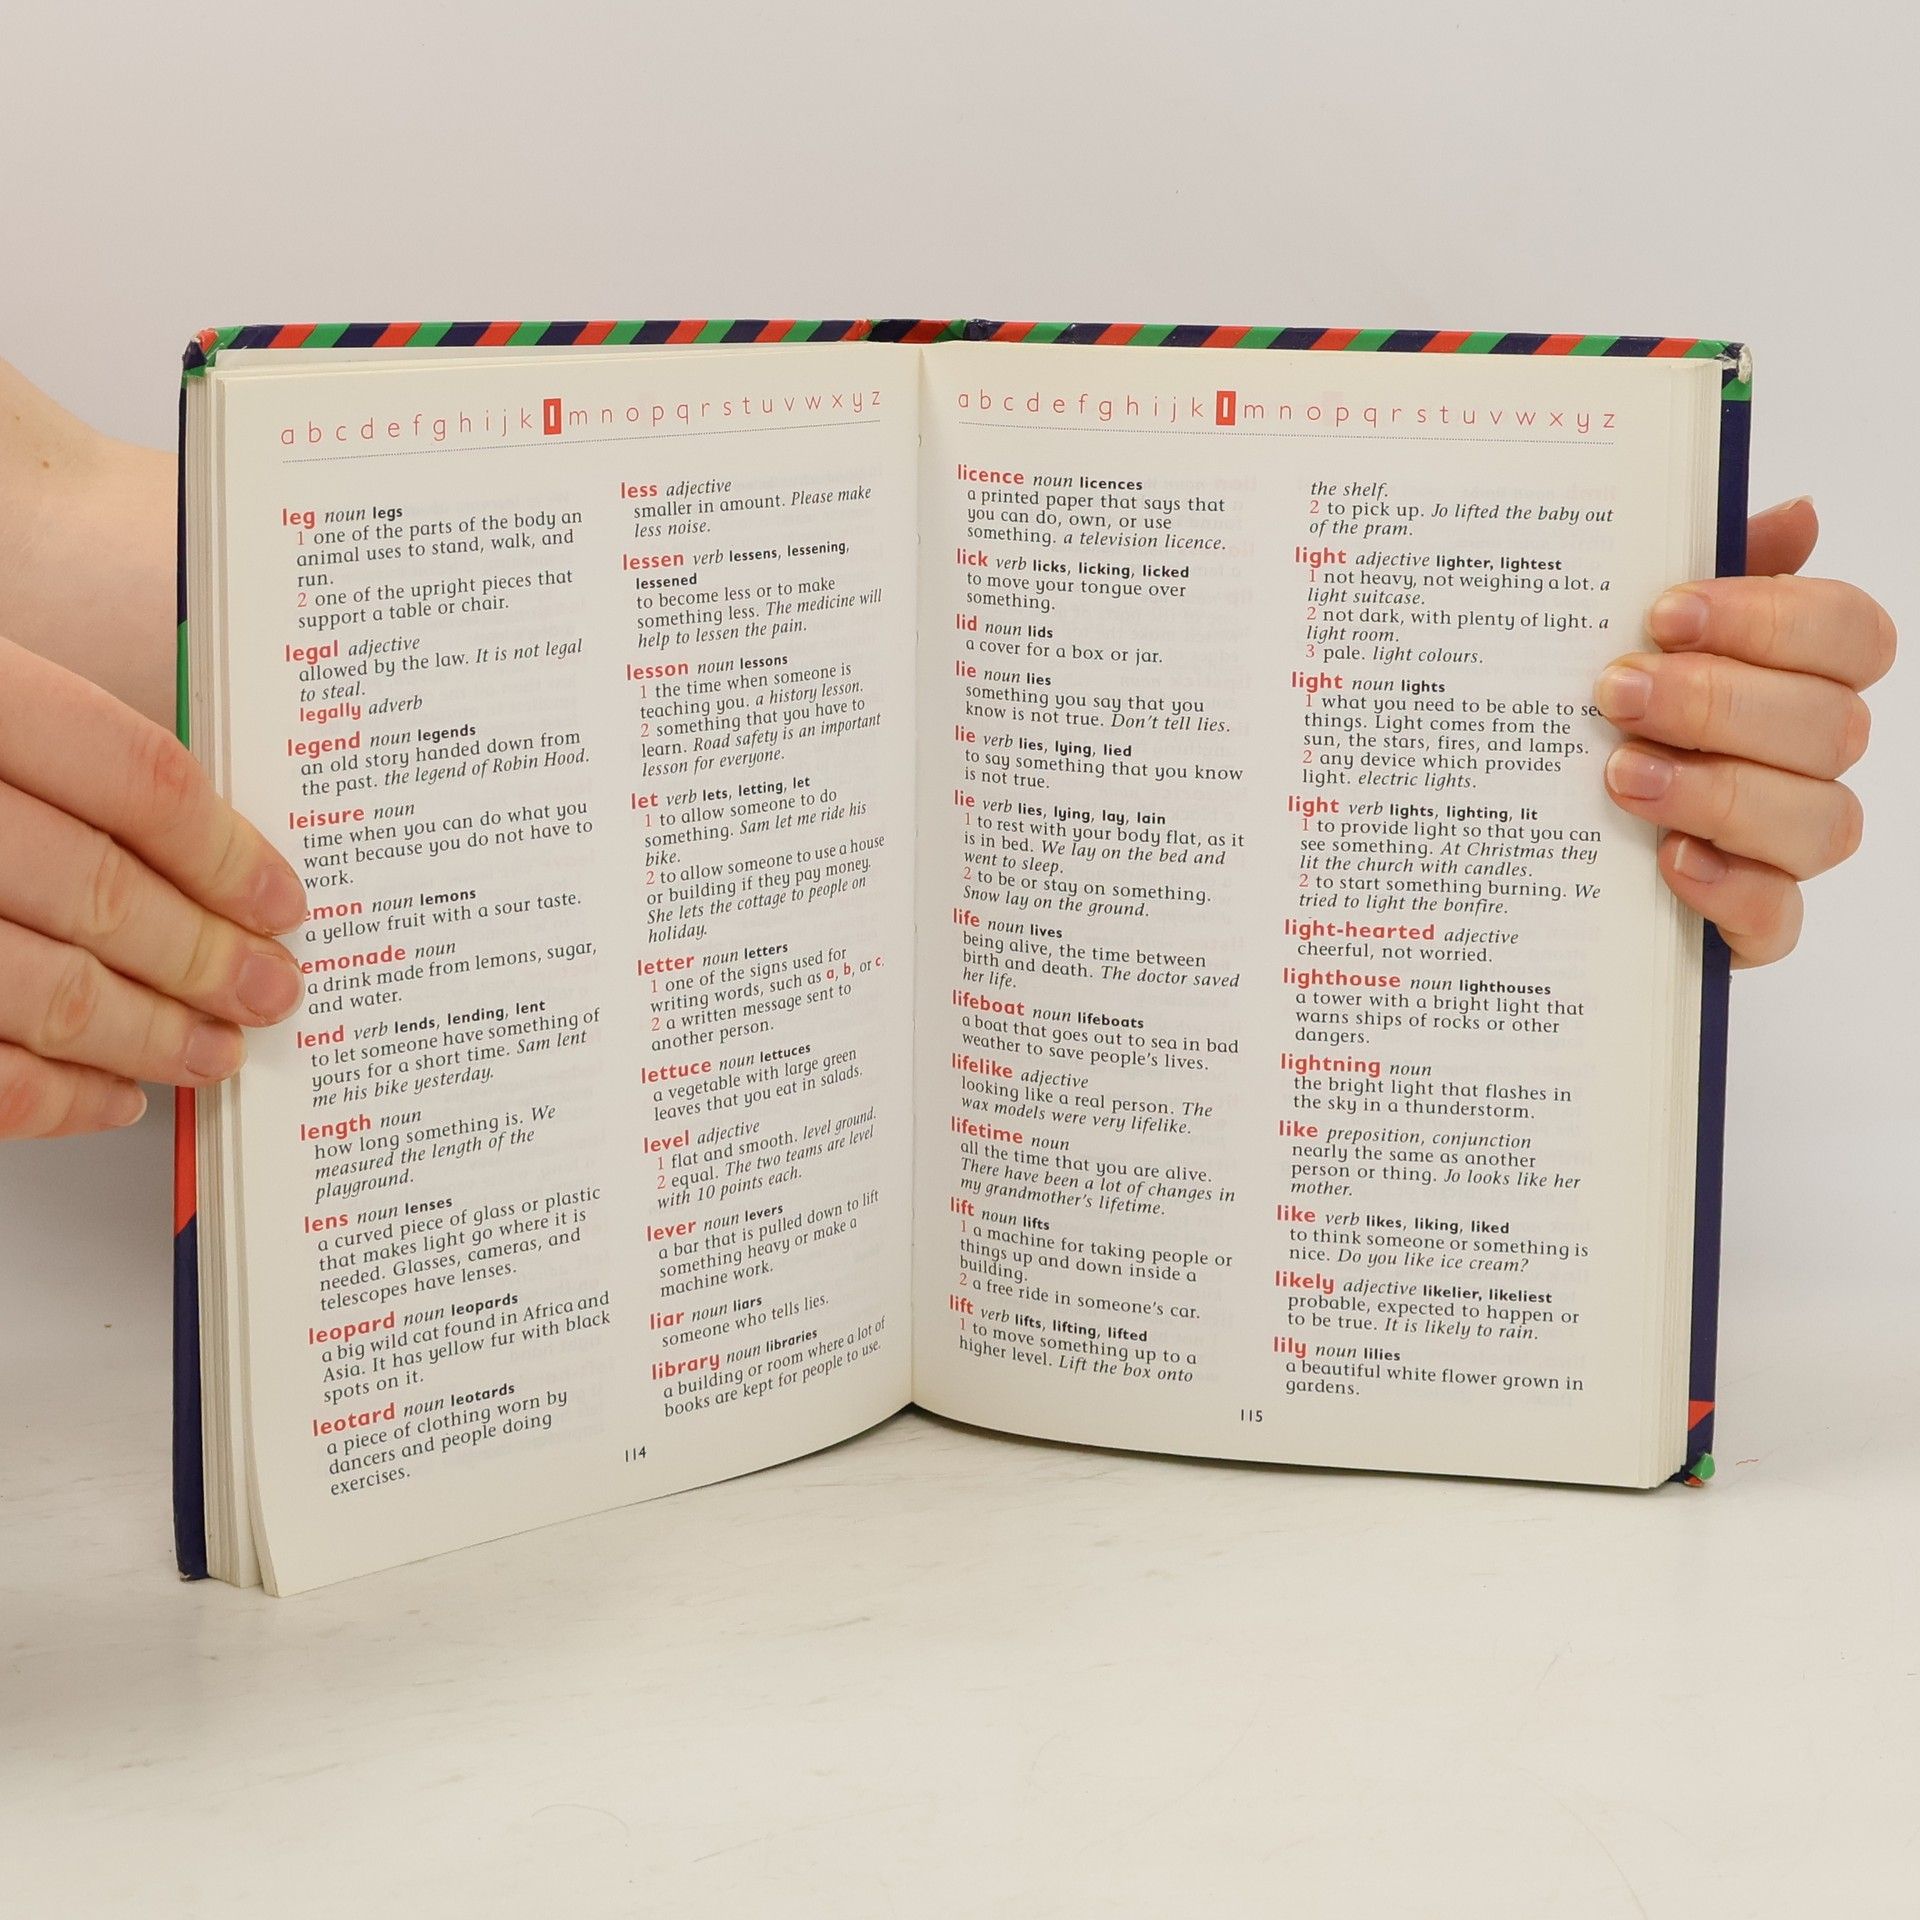 a b c d e f g h i j k l m n o p q r s t u v w x y z
leg noun legs
1 one of the parts of the body an
animal uses to stand, walk, and
run.
2 one of the upright pieces that
support a table or chair.
legal adjective
allowed by the law. It is not legal
to steal.
legally adverb
legend noun legends
an old story handed down from
the past. the legend of Robin Hood.
leisure noun
time when you can do what you
want because you do not have to
work.
emon noun lemons
a yellow fruit with a sour taste.
emonade noun
a drink made from lemons, sugar,
and water.
lend verb lends, lending, lent
to let someone have something of
yours for a short time. Sam lent
me his bike yesterday.
length noun
how long something is. We
measured the length of the
playground.
lens noun lenses
a curved piece of glass or plastic
that makes light go where it is
needed. Glasses, cameras, and
telescopes have lenses.
leopard noun leopards
a big wild cat found in Africa and
Asia. It has yellow fur with black
spots on it.
leotard noun leotards
a piece of clothing worn by
dancers and people doing
exercises.
less adjective
smaller in amount. Please make
less noise.
lessen verb lessens, lessening,
lessened
to become less or to make
something less. The medicine will
help to lessen the pain.
lesson noun lessons
1 the time when someone is
teaching you. a history lesson.
2 something that you have to
learn. Road safety is an important
lesson for everyone.
let verb lets, letting, let
1 to allow someone to do
something. Sam let me ride his
bike.
2 to allow someone to use a house
or building if they pay money.
She lets the cottage to people on
holiday.
letter noun letters
1 one of the signs used for
writing words, such as a, b, or c.
2 a written message sent to
another person.
lettuce noun lettuces
a vegetable with large green
leaves that you eat in salads.
level adjective
1 flat and smooth. level ground.
2 equal. The two teams are level
with 10 points each.
lever noun levers
a bar that is pulled down to lift
something heavy or make a
machine work.
liar noun liars
someone who tells lies.
library noun libraries
a building or room where a lot of
books are kept for people to use.
114
a b c d e f g h i j k l m n o p q r s t u v w x y z
licence noun licences
a printed paper that says that
you can do, own, or use
something. a television licence.
lick verb licks, licking, licked
to move your tongue over
something.
lid noun lids
a cover for a box or jar.
lie noun lies
something you say that you
know is not true. Don't tell lies.
lie verb lies, lying, lied
to say something that you know
is not true.
lie verb lies, lying, lay, lain
1 to rest with your body flat, as it
is in bed. We lay on the bed and
went to sleep.
2 to be or stay on something.
Snow lay on the ground.
life noun lives
being alive, the time between
birth and death. The doctor saved
her life.
lifeboat noun lifeboats
a boat that goes out to sea in bad
weather to save people's lives.
lifelike adjective
looking like a real person. The
wax models were very lifelike.
lifetime noun
all the time that you are alive.
There have been a lot of changes in
my grandmother's lifetime.
lift noun lifts
1 a machine for taking people or
things up and down inside a
building.
2 a free ride in someone's car.
lift verb lifts, lifting, lifted
1 to move something up to a
higher level. Lift the box onto
the shelf.
2 to pick up. Jo lifted the baby out
of the pram.
light adjective lighter, lightest
1 not heavy, not weighing a lot. a
light suitcase.
2 not dark, with plenty of light. a
light room.
3 pale. light colours.
light noun lights
1 what you need to be able to see
things. Light comes from the
sun, the stars, fires, and lamps.
2 any device which provides
light. electric lights.
light verb lights, lighting, lit
1 to provide light so that you can
see something. At Christmas they
lit the church with candles.
2 to start something burning. We
tried to light the bonfire.
light-hearted adjective
cheerful, not worried.
lighthouse noun lighthouses
a tower with a bright light that
warns ships of rocks or other
dangers.
lightning noun
the bright light that flashes in
the sky in a thunderstorm.
like preposition, conjunction
nearly the same as another
person or thing. Jo looks like her
mother.
like verb likes, liking, liked
to think someone or something is
nice. Do you like ice cream?
likely adjective likelier, likeliest
probable, expected to happen or
to be true. It is likely to rain.
lily noun lilies
a beautiful white flower grown in
gardens.
115